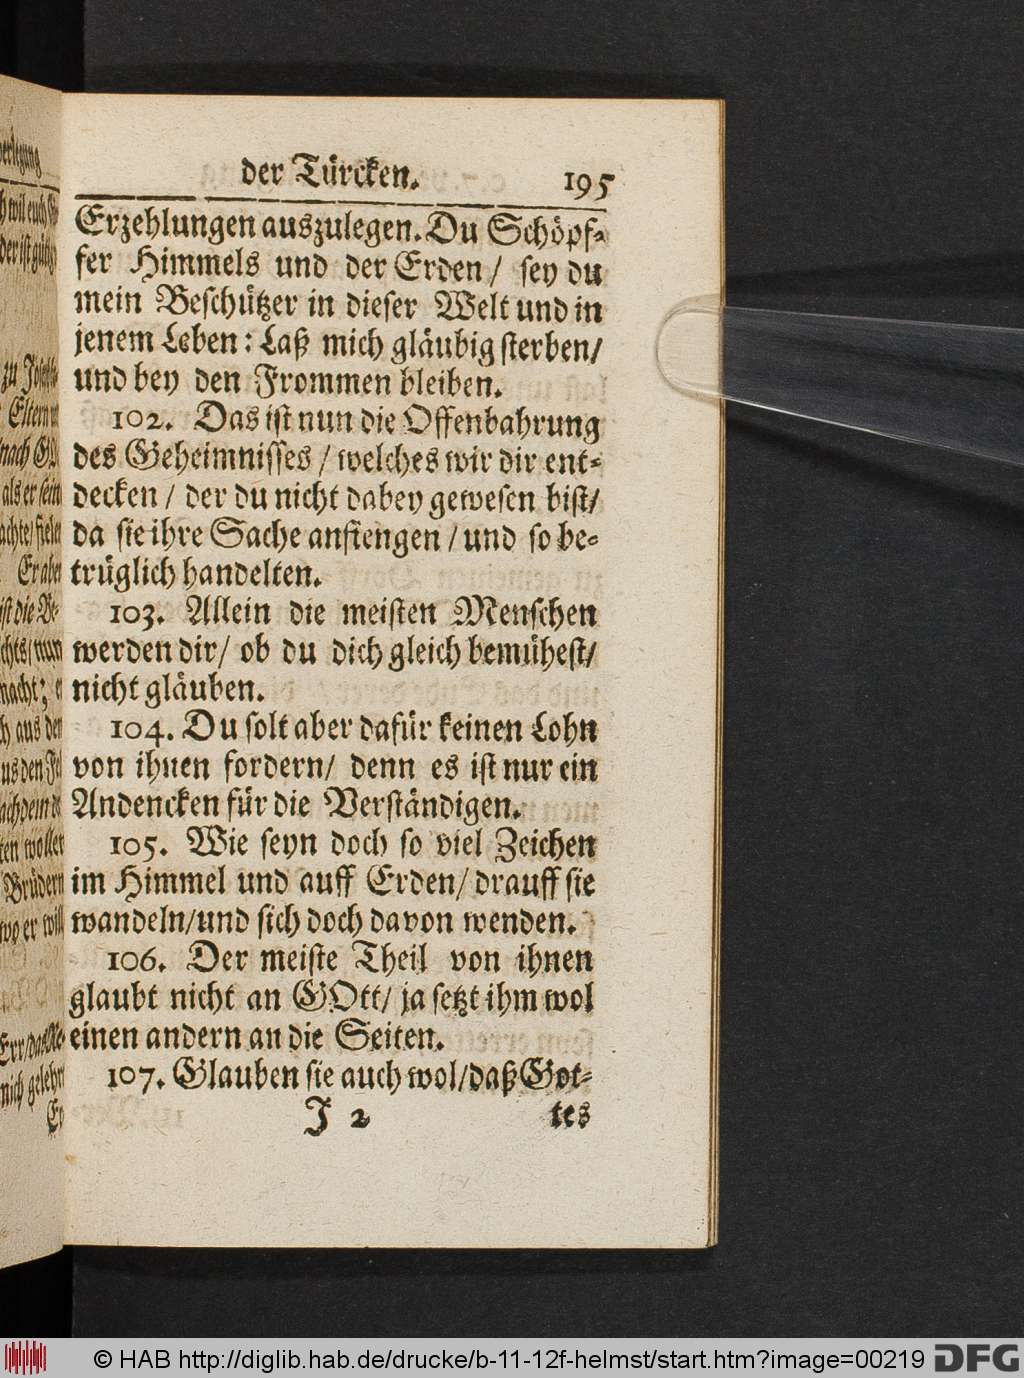 der Türcken. 195
Erzehlungen auszulegen. Du Schöpf-
fer Himmels und der Erden / sey du
mein Beschützer in dieser Welt und in
jenem Leben: Laß mich gläubig sterben/
und bey den Frommen bleiben.
102. Das ist nun die Offenbahrung
des Geheimnisses / welches wir dir ent-
decken / der du nicht dabey gewesen bist/
da sie ihre Sache anfiengen / und so be-
trüglich handelten.
103. Allein die meisten Menschen
werden dir/ ob du dich gleich bemühest/
nicht gläuben.
104. Du solt aber dafür keinen Lohn
von ihnen fordern/ denn es ist nur ein
Andencken für die Verständigen.
105. Wie seyn doch so viel Zeichen
im Himmel und auff Erden/ drauff sie
wandeln/und sich doch davon wenden.
106. Der meiste Theil von ihnen
glaubt nicht an GOtt/ ja setzt ihm wol
einen andern an die Seiten.
107. Glauben sie auch wol/daß Got-
J 2 tes
© HAB http://diglib.hab.de/drucke/b-11-12f-helmst/start.htm?image=00219 DFG